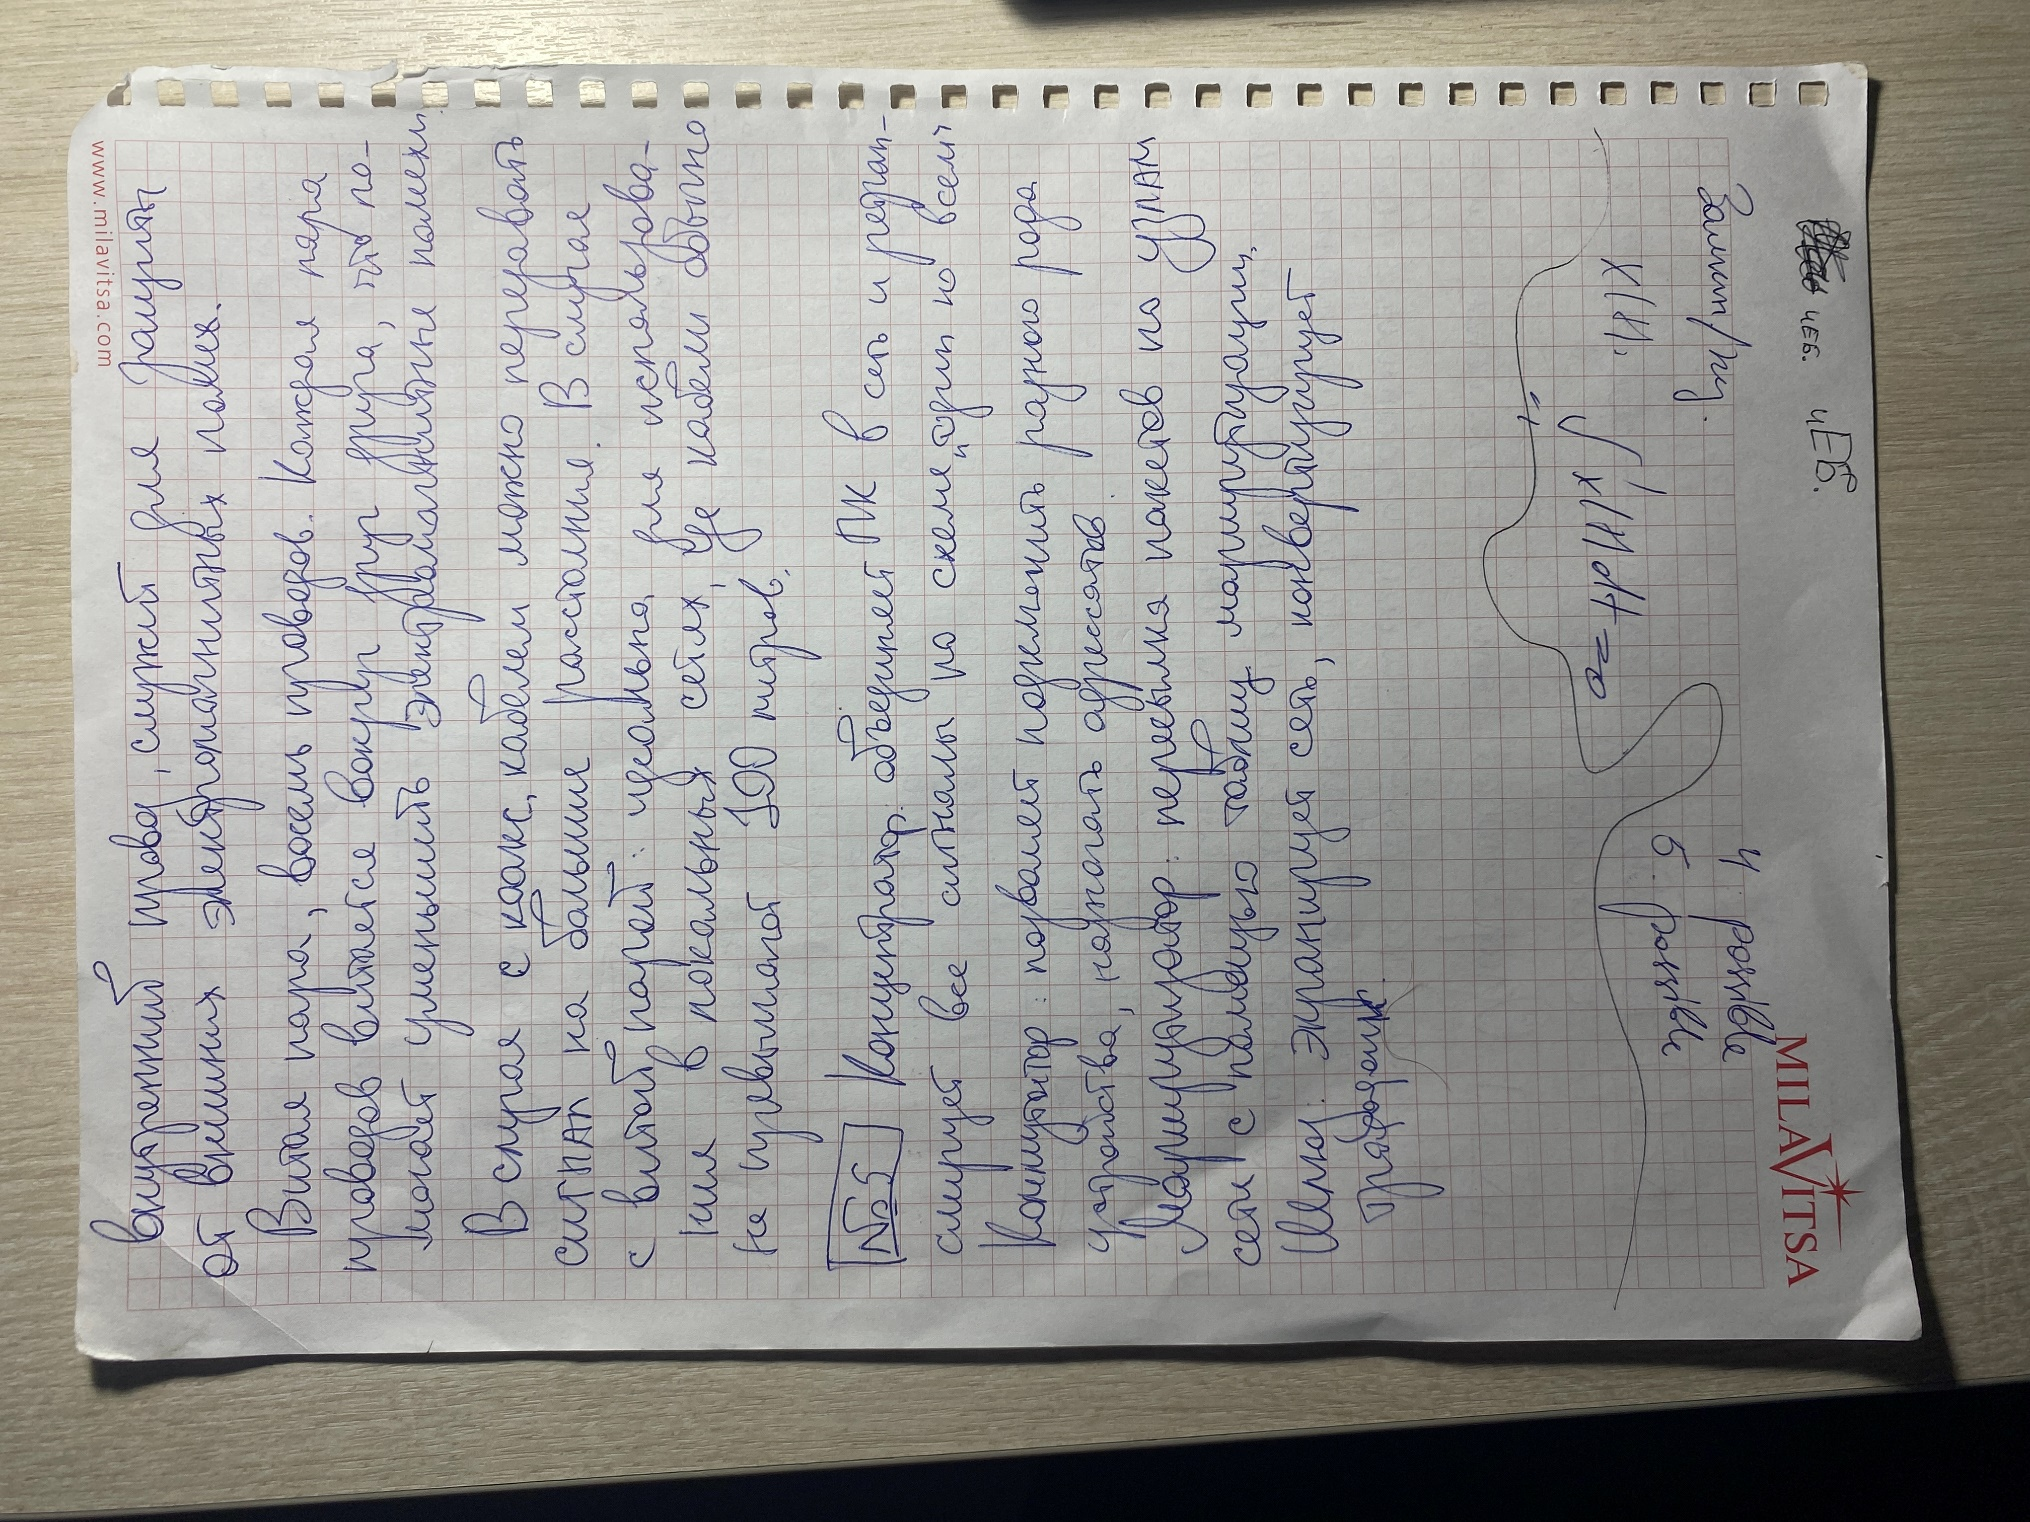 www.milavitsa.com
внутренний провод, служит для защиты
от внешних электромагнитных помех.
Витая пара, восемь проводов. Каждая пара
проводов витается вокруг друг друга, что по-
может уменьшить электромагнитные помехи
В случая с коакс. кабелем можно передовать
сигнал на большие растояния. В случае
с витой парой: идеальна для использова-
ния в локальных сетях, где кабели обычно
не превышают 100 митров.
№5 Концентратор: объединяет ПК в сеть и ретран-
слирует все сигналы по схеме "один ко всем"
Коммутатор: позваляет подключить разного рода
устройства, назначать адресатов.
Маршрутизатор: пересылка пакетов по узлам
сети с помощью таблиц маршрутизации.
Шлюз: экранирует сеть, конвертирует
трафик.
x(t).
∫ x(t)dt =
5. possible
4 possible
чев. чЕв.
MILAVITSA